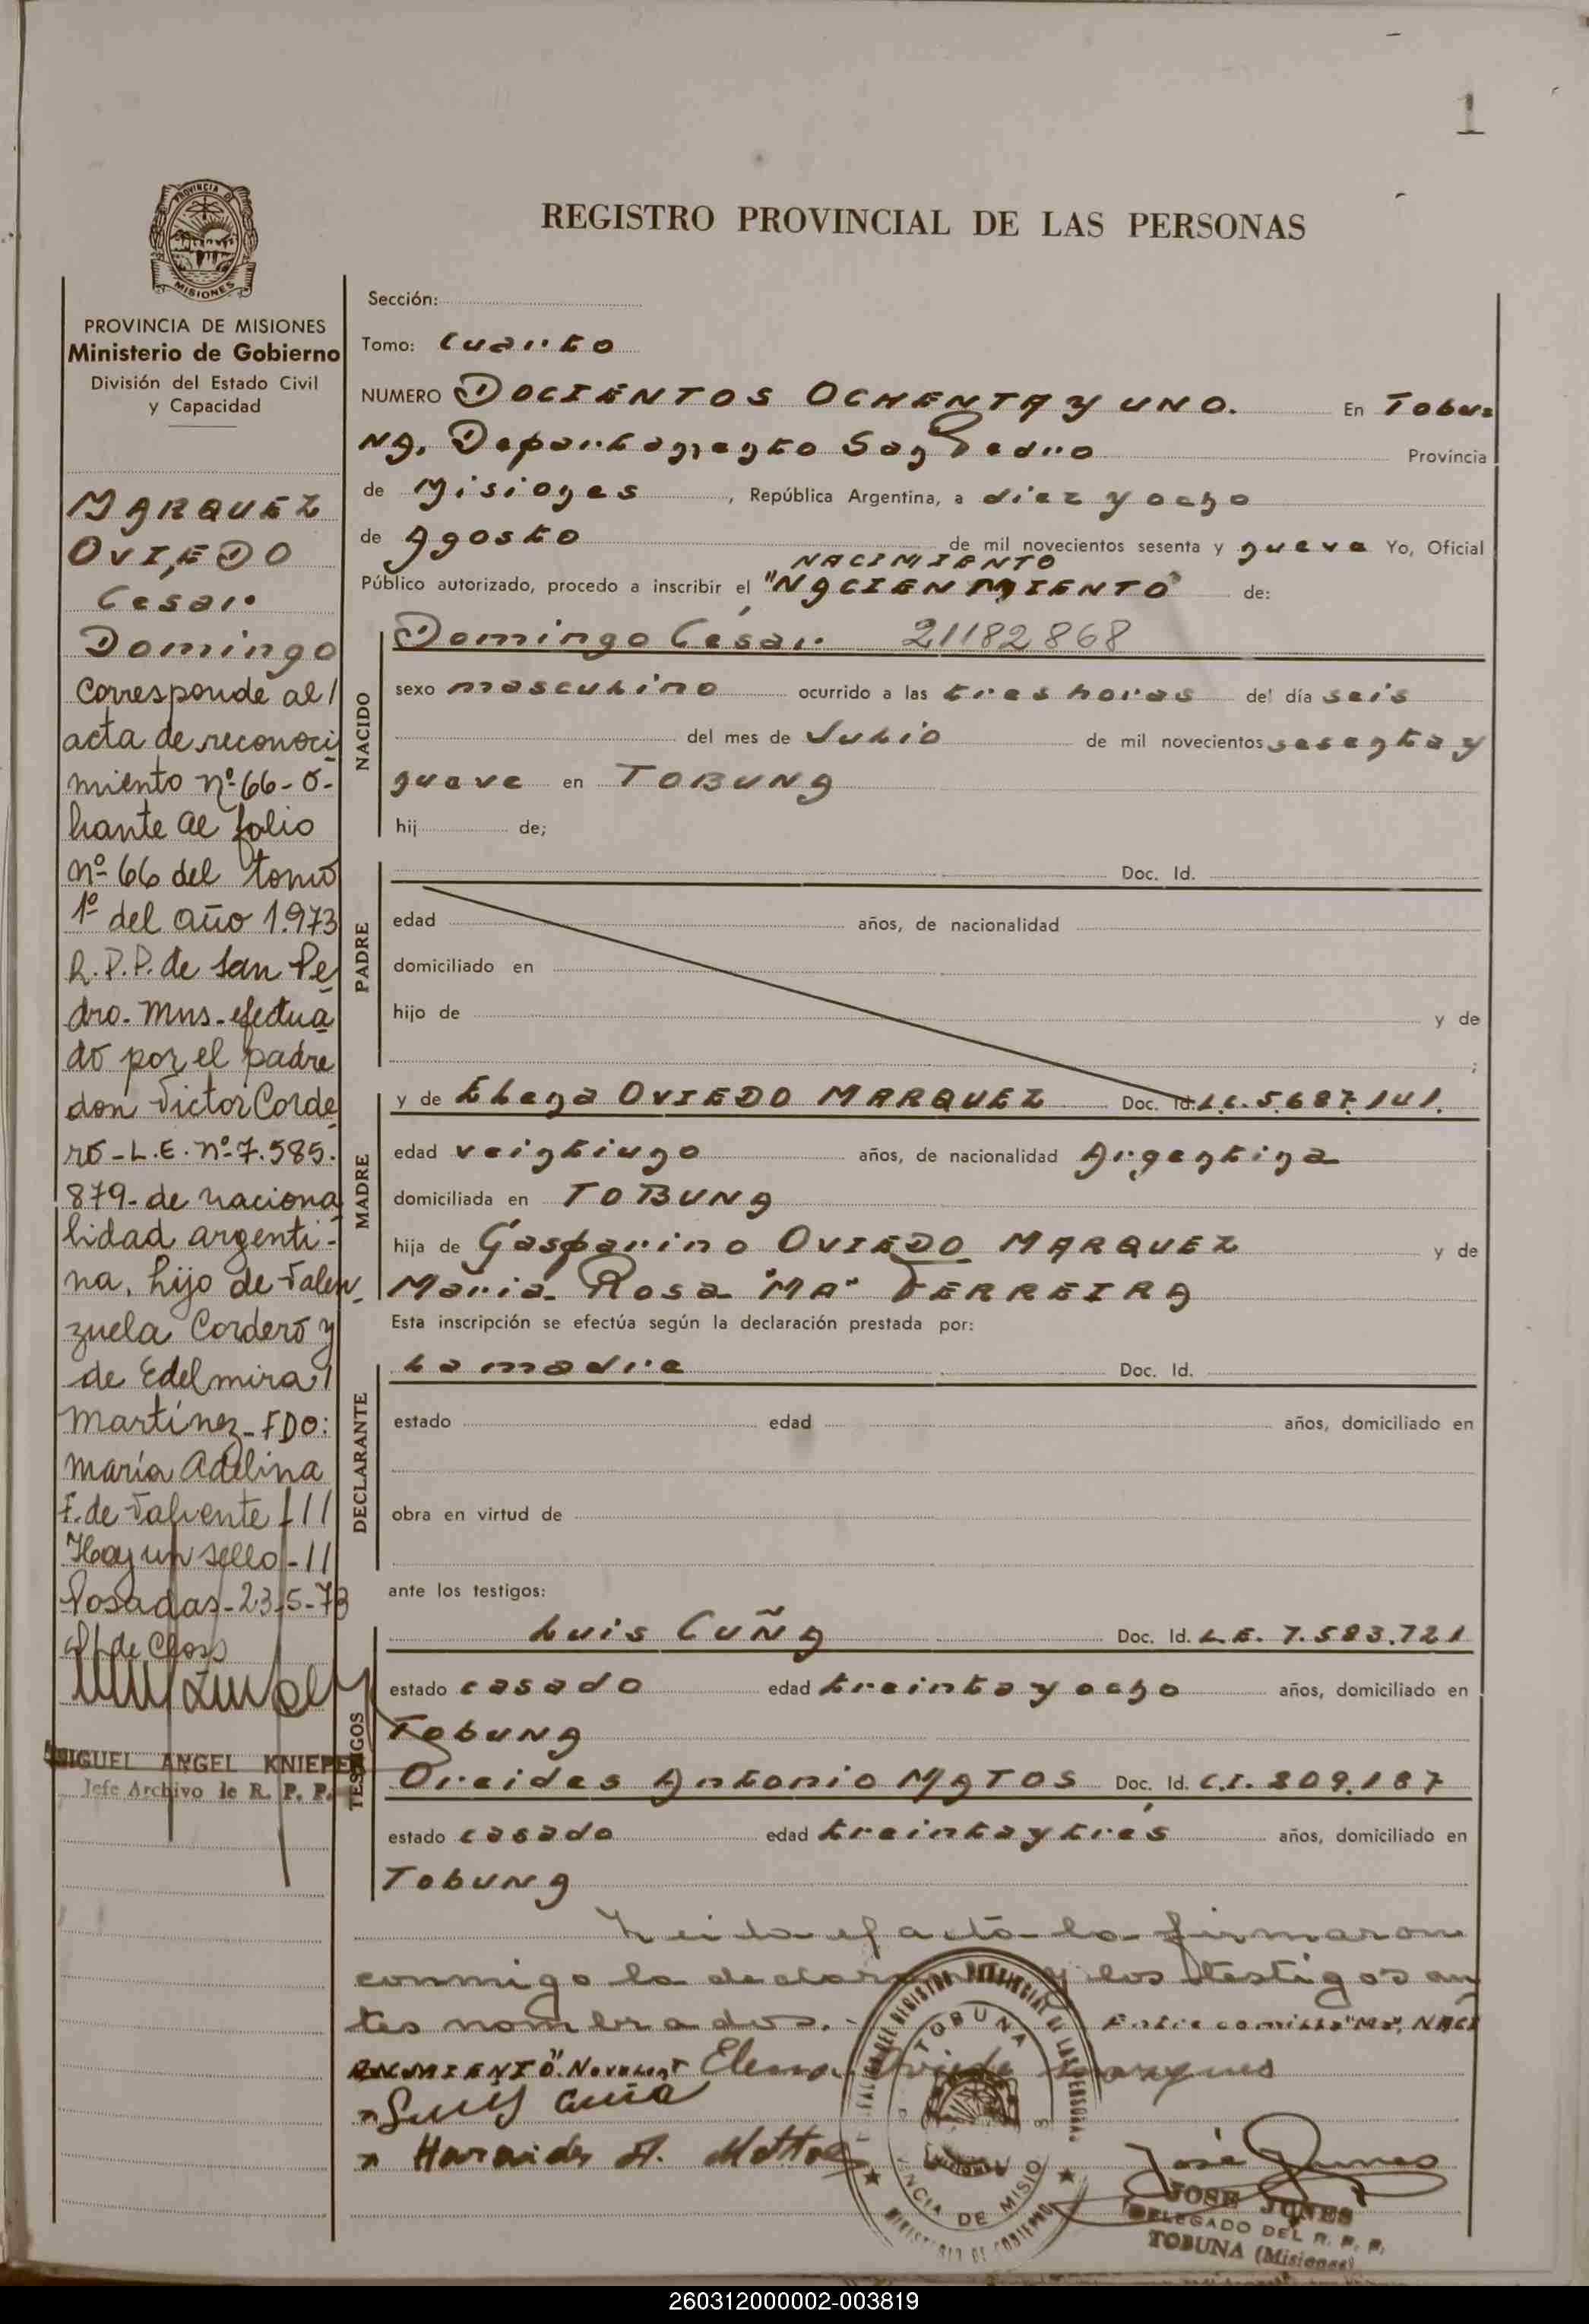 1
PROVINCIA DE
MISIONES
REGISTRO PROVINCIAL DE LAS PERSONAS
PROVINCIA DE MISIONES
Ministerio de Gobierno
División del Estado Civil
y Capacidad
MARQUEZ
OVIEDO
Cesar
Domingo
Corresponde al /
acta de reconoci
miento nº 66-o-
brante al folio
nº 66 del tomo
1º del año 1.973
R.P.P. de San Pe
dro. Mns. efectua
do por el padre
don Victor Corde
ro - L.E. nº 7.585.
879- de naciona
lidad argenti-
na, hijo de Valen
zuela Cordero y
de Edelmira /
Martínez - FDO:
María Adelina
F. de Valiente - //
Hay un sello - //
Posadas - 23-5-73
de Closs
MIGUEL ANGEL KNIEPER
Jefe Archivo de R. P. P.
Sección:
Tomo: Cuarto
NUMERO DOCIENTOS OCHENTA Y UNO. En Tobu=
na, Departamento San Pedro Provincia
de Misiones, República Argentina, a diez y ocho
de Agosto de mil novecientos sesenta y nueve Yo, Oficial
NACIMIENTO
Público autorizado, procedo a inscribir el "NACIENMIENTO" de:
NACIDO
Domingo César 21182868
sexo masculino ocurrido a las tres horas del día seis
del mes de Julio de mil novecientos sesenta y
nueve en TOBUNA
hij de;
PADRE
Doc. Id.
edad años, de nacionalidad
domiciliado en
hijo de y de
;
MADRE
y de Elena OVIEDO MARQUEZ Doc. Id. L.C. 5.687.141.
edad veintiuno años, de nacionalidad Argentina
domiciliada en TOBUNA
hija de Gasparino OVIEDO MARQUEZ y de
Maria Rosa "MA" FERREIRA
Esta inscripción se efectúa según la declaración prestada por:
DECLARANTE
La madre Doc. Id.
estado edad años, domiciliado en
obra en virtud de
ante los testigos:
TESTIGOS
Luis CUÑA Doc. Id. L.E. 7.583.721
estado casado edad treinta y ocho años, domiciliado en
Tobuna
Oreides Antonio MATOS Doc. Id. C.I. 809.187
estado casado edad treinta y tres años, domiciliado en
Tobuna
Leida el acta la firmaron
conmigo la declarante y los testigos an
tes nombrados.- Entre comilla "Ma", NACI
Elena Oviedo Marques
Luis Cuña
TOBUNA
PROVINCIA DE MISIONES
MINISTERIO DE GOBIERNO
José Junes
JOSE JUNES
DELEGADO DEL R. P. P.
TOBUNA (Misiones)
260312000002-003819